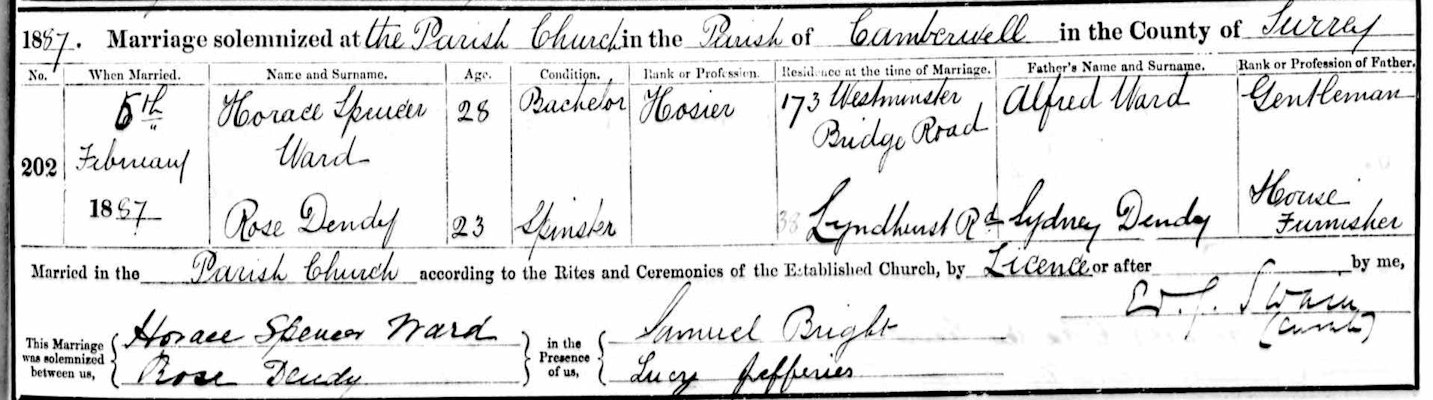 1887. Marriage solemnized at the Parish Church in the Parish of Camberwell in the County of Surrey
No. When Married. Name and Surname. Age. Condition. Rank or Profession. Residence at the time of Marriage. Father's Name and Surname. Rank or Profession of Father.
202 5th February 1887 Horace Spencer Ward 28 Bachelor Hosier 173 Westminster Bridge Road Alfred Ward Gentleman
Rose Dendy 23 Spinster 38 Lyndhurst Rd Sydney Dendy House Furnisher
Married in the Parish Church according to the Rites and Ceremonies of the Established Church, by Licence or after by me,
This Marriage was solemnized between us, Horace Spencer Ward Rose Dendy in the Presence of us, Samuel Bright Lucy Jefferies